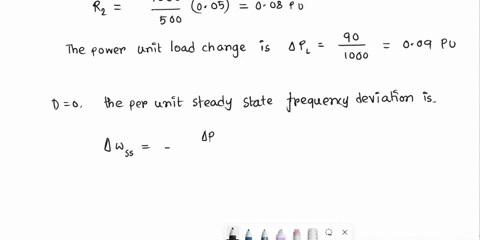 R₂ = ____ (0.05) = 0.08 PU
500
The power unit load change is ΔP_L = 90/1000 = 0.09 PU
D=0, the per unit steady state frequency deviation is.
Δω_ss = - ΔP